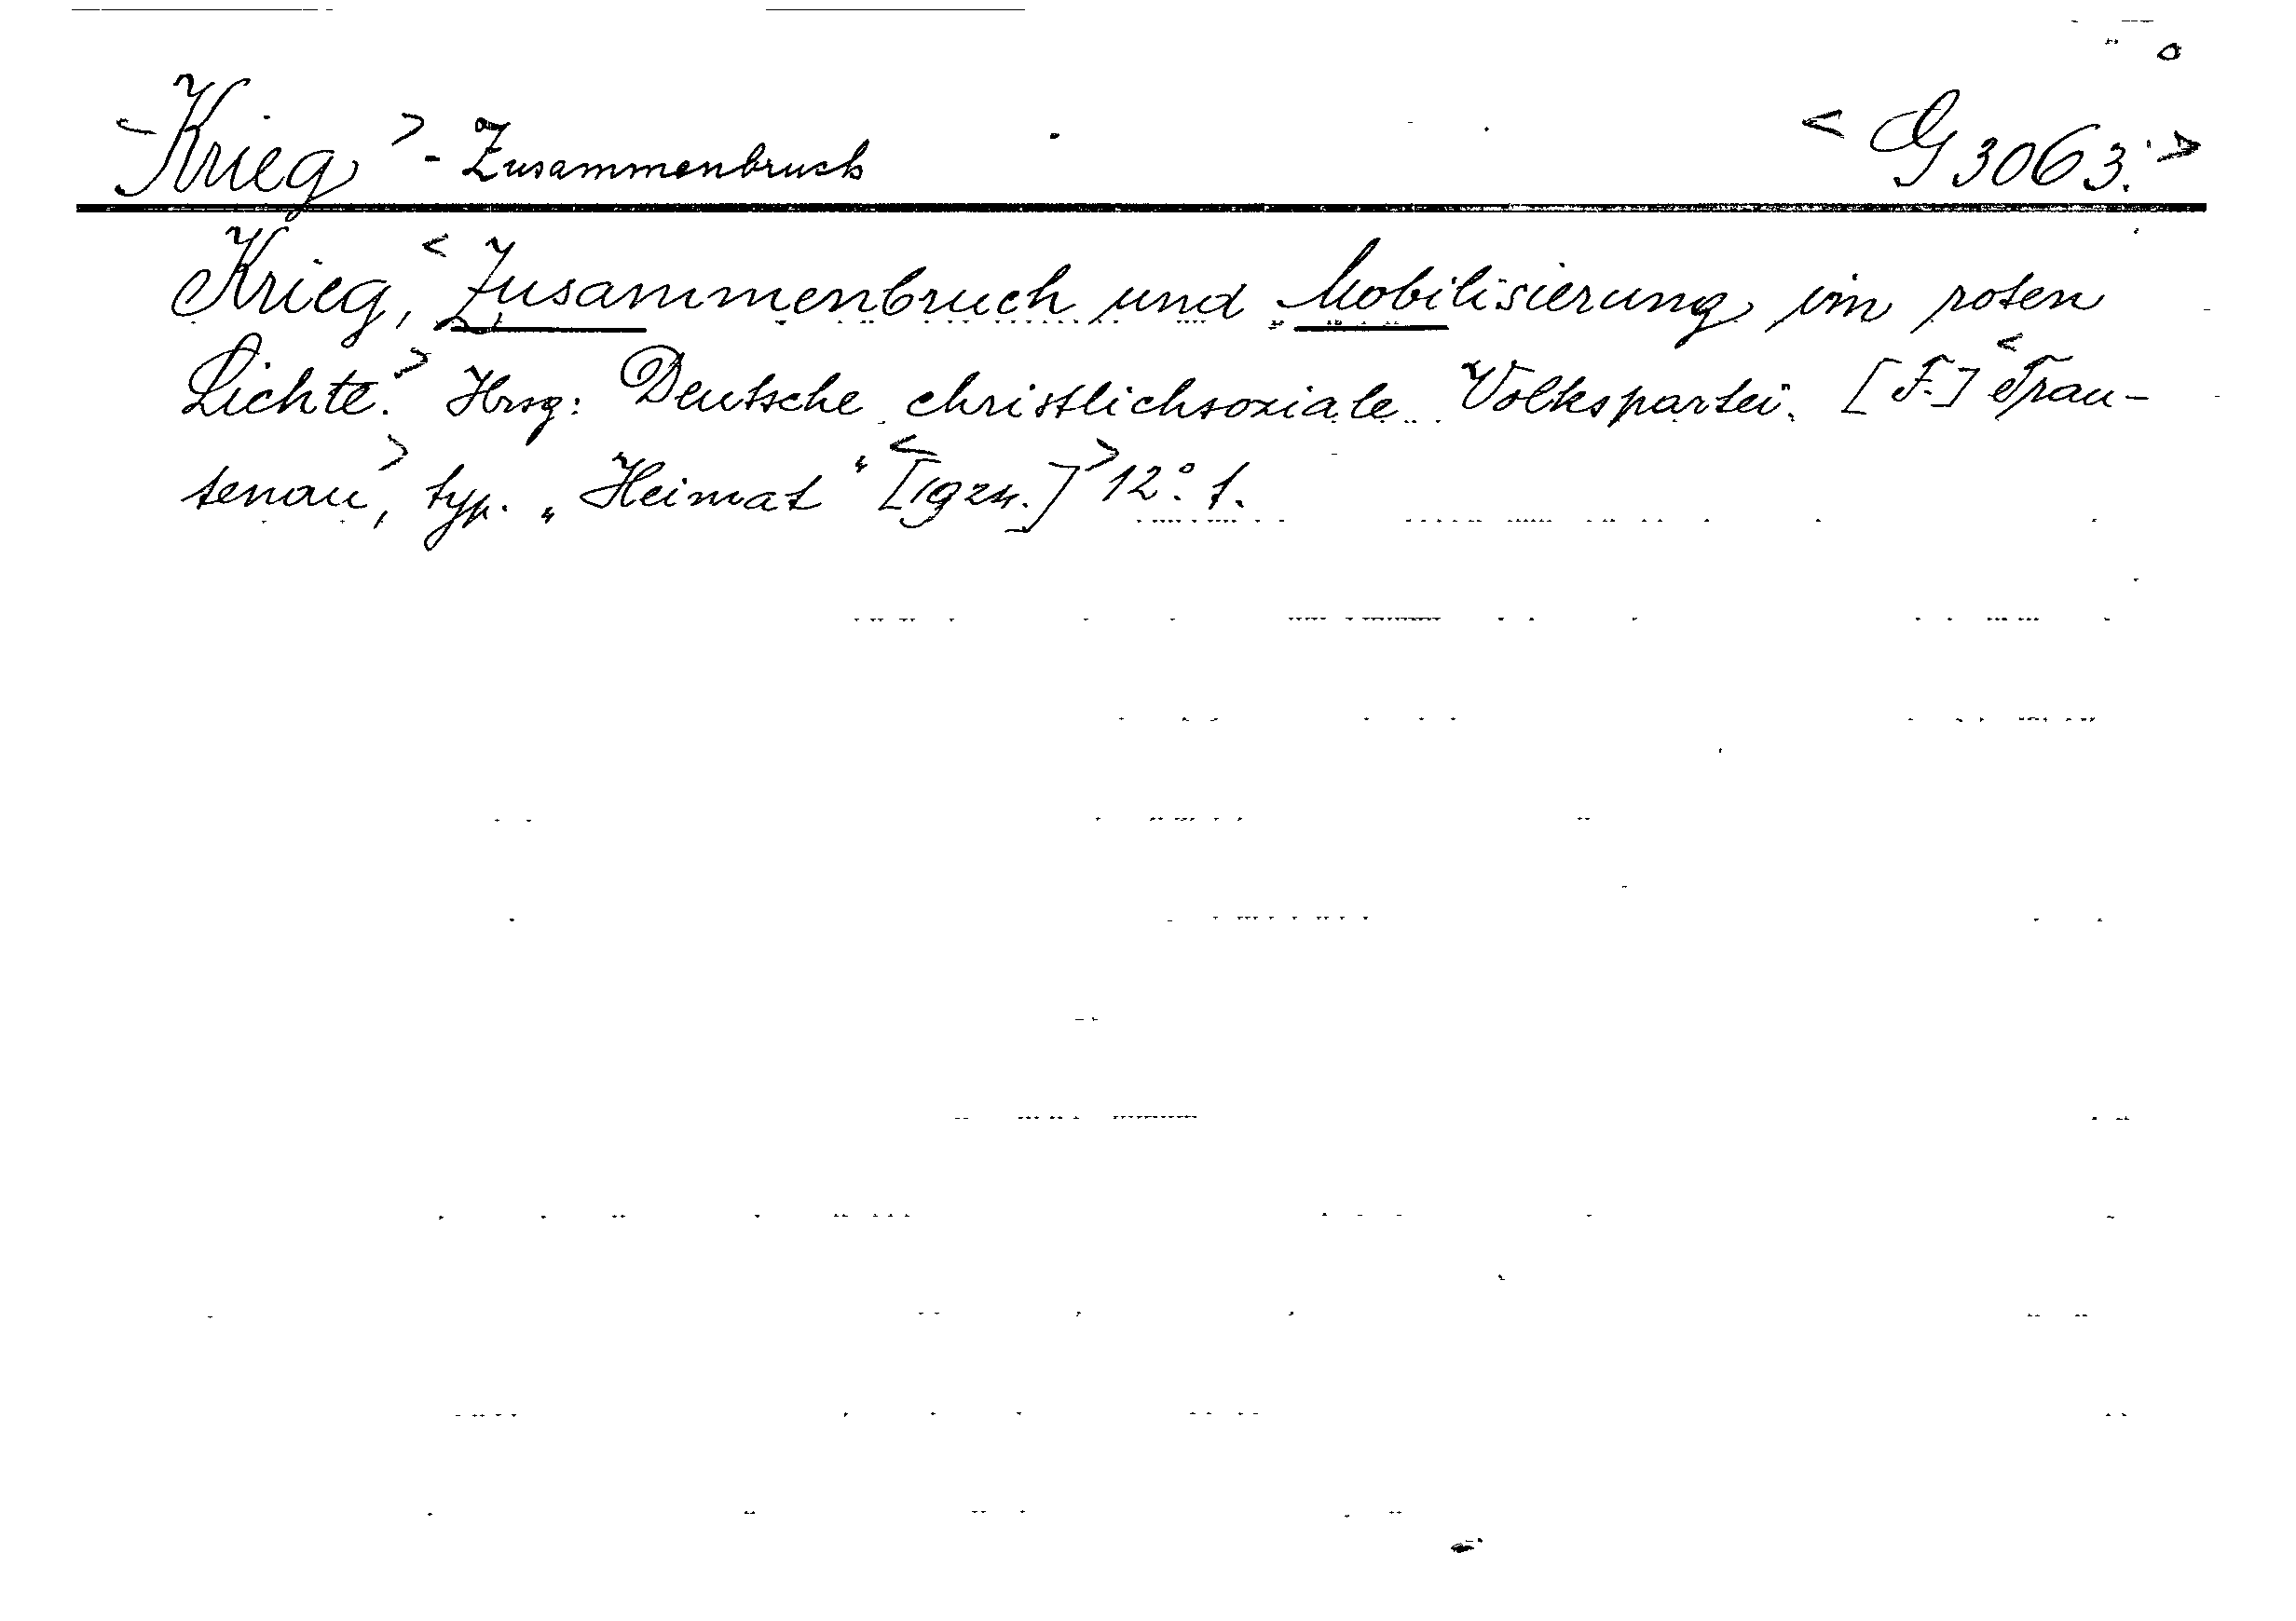 <Krieg> - Zusammenbruch <G 3063.>
Krieg, <Zusammenbruch und Mobilisierung im roten
Lichte.> Hrsg: Deutsche christlichsoziale Volkspartei. [F.] <Trau-
tenau>, typ. „Heimat“ <[192.]> 12°. f.